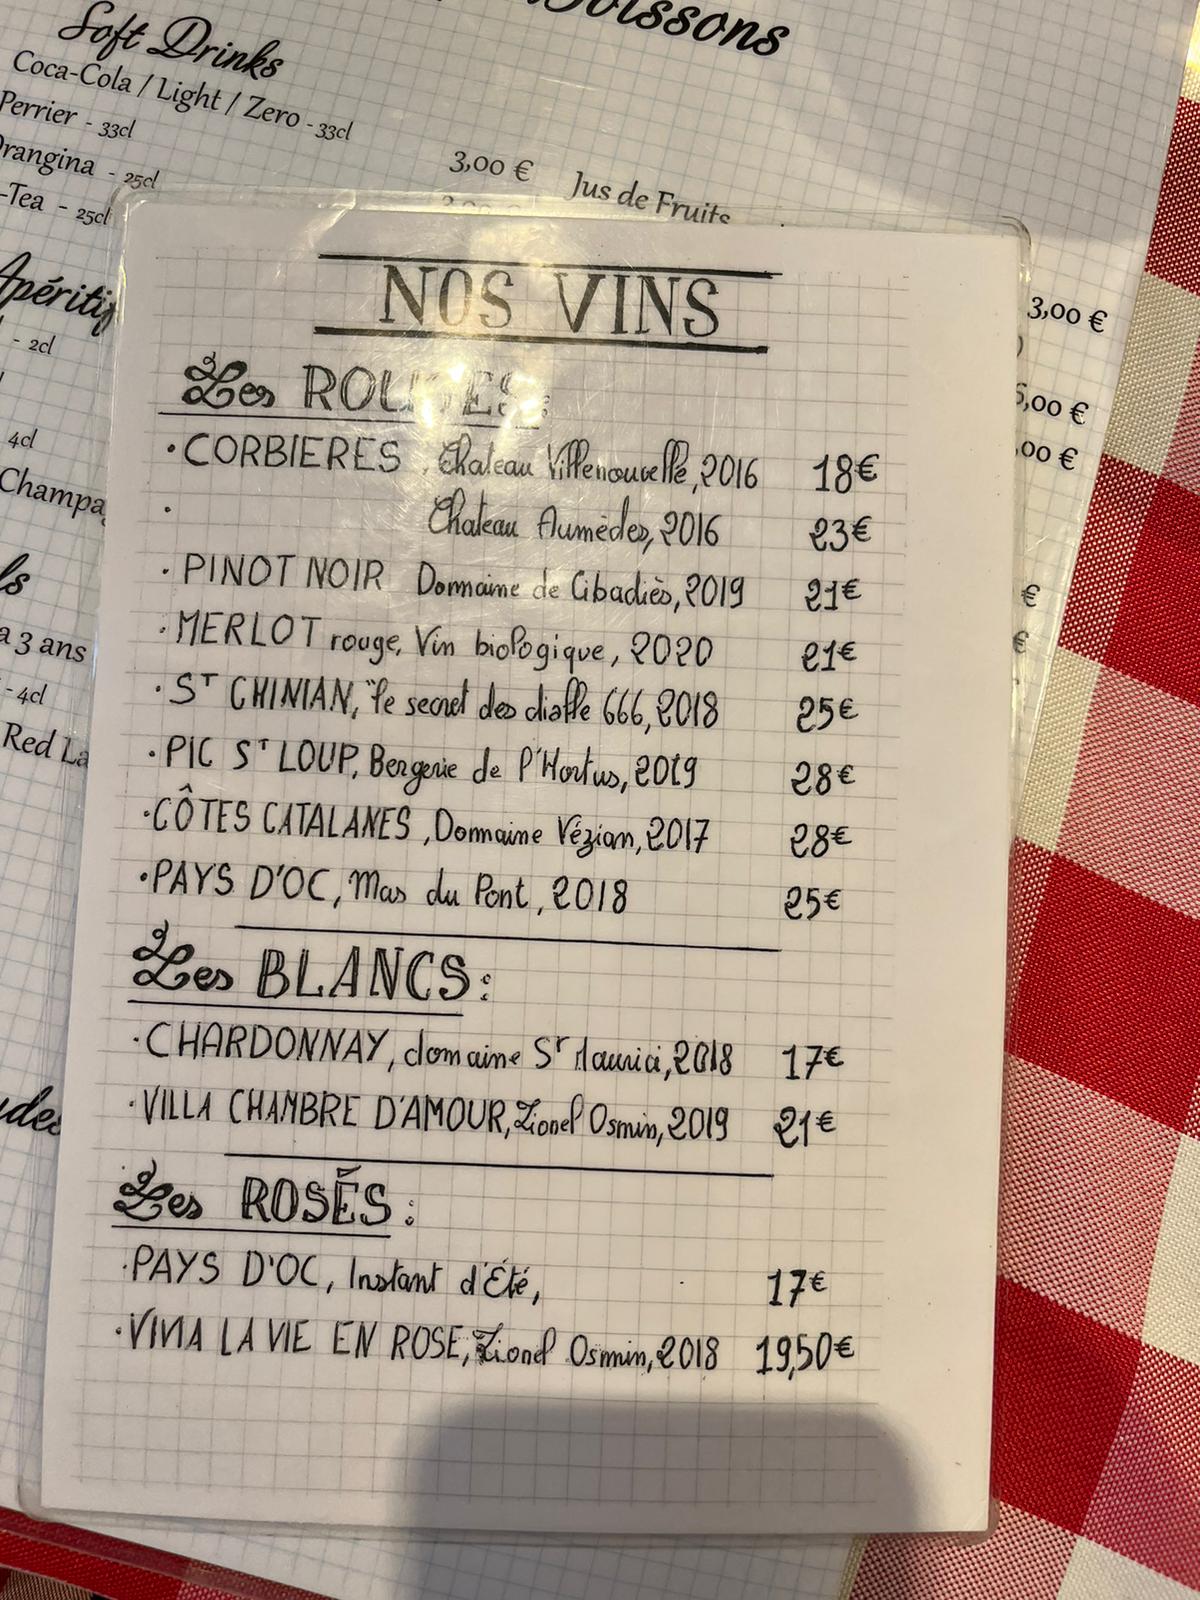 Boissons
Soft Drinks
Coca-Cola / Light / Zero - 33cl
Perrier - 33cl
rangina - 25cl
-Tea - 25cl
3,00 €
Jus de Fruits
Apéritif
- 2cl
4cl
Champa
a 3 ans
- 4cl
Red La
3,00 €
,00 €
,00 €
€
€
NOS VINS
Les ROUGES:
· CORBIERES , Chateau Villenouvelle, 2016 18€
· Chateau Aumèdes, 2016 23€
· PINOT NOIR Domaine de Cibadiès, 2019 21€
· MERLOT rouge, Vin biologique, 2020 21€
· ST CHINIAN, "le secret des diable 666, 2018 25€
· PIC ST LOUP, Bergerie de l'Hortus, 2019 28€
· CÔTES CATALANES , Domaine Vézian, 2017 28€
· PAYS D'OC, Mas du Pont, 2018 25€
Les BLANCS:
· CHARDONNAY, domaine ST Maurici, 2018 17€
· VILLA CHAMBRE D'AMOUR, Lionel Osmin, 2019 21€
Les ROSÉS:
· PAYS D'OC, Instant d'Été, 17€
· VINA LA VIE EN ROSE, Lionel Osmin, 2018 19,50€